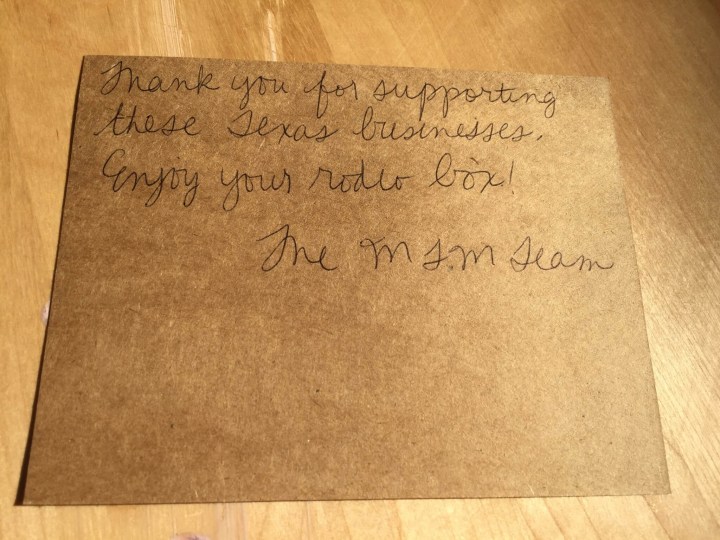 Thank you for supporting
these Texas businesses.
Enjoy your rodeo box!
The MFM Team